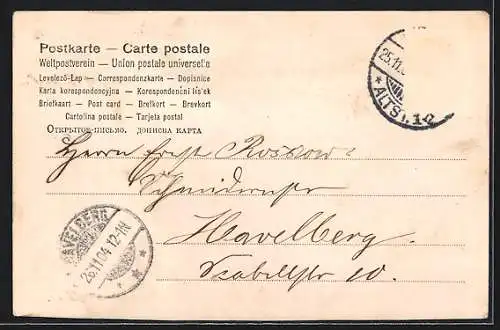 Postkarte — Carte postale
Weltpostverein — Union postale universelle
Levelező-Lap — Correspondenzkarte — Dopisnice
Karta korespondencyjna — Korespondenční lístek
Briefkaart — Post card — Brefkort — Brevkort
Cartolina postale — Tarjeta postal
Открытое письмо. дописна карта
25.11.
* ALTS
Herrn Ernst Rossow
Schneidermstr
Havelberg.
HAVELBERG
26.11.04 12-1N